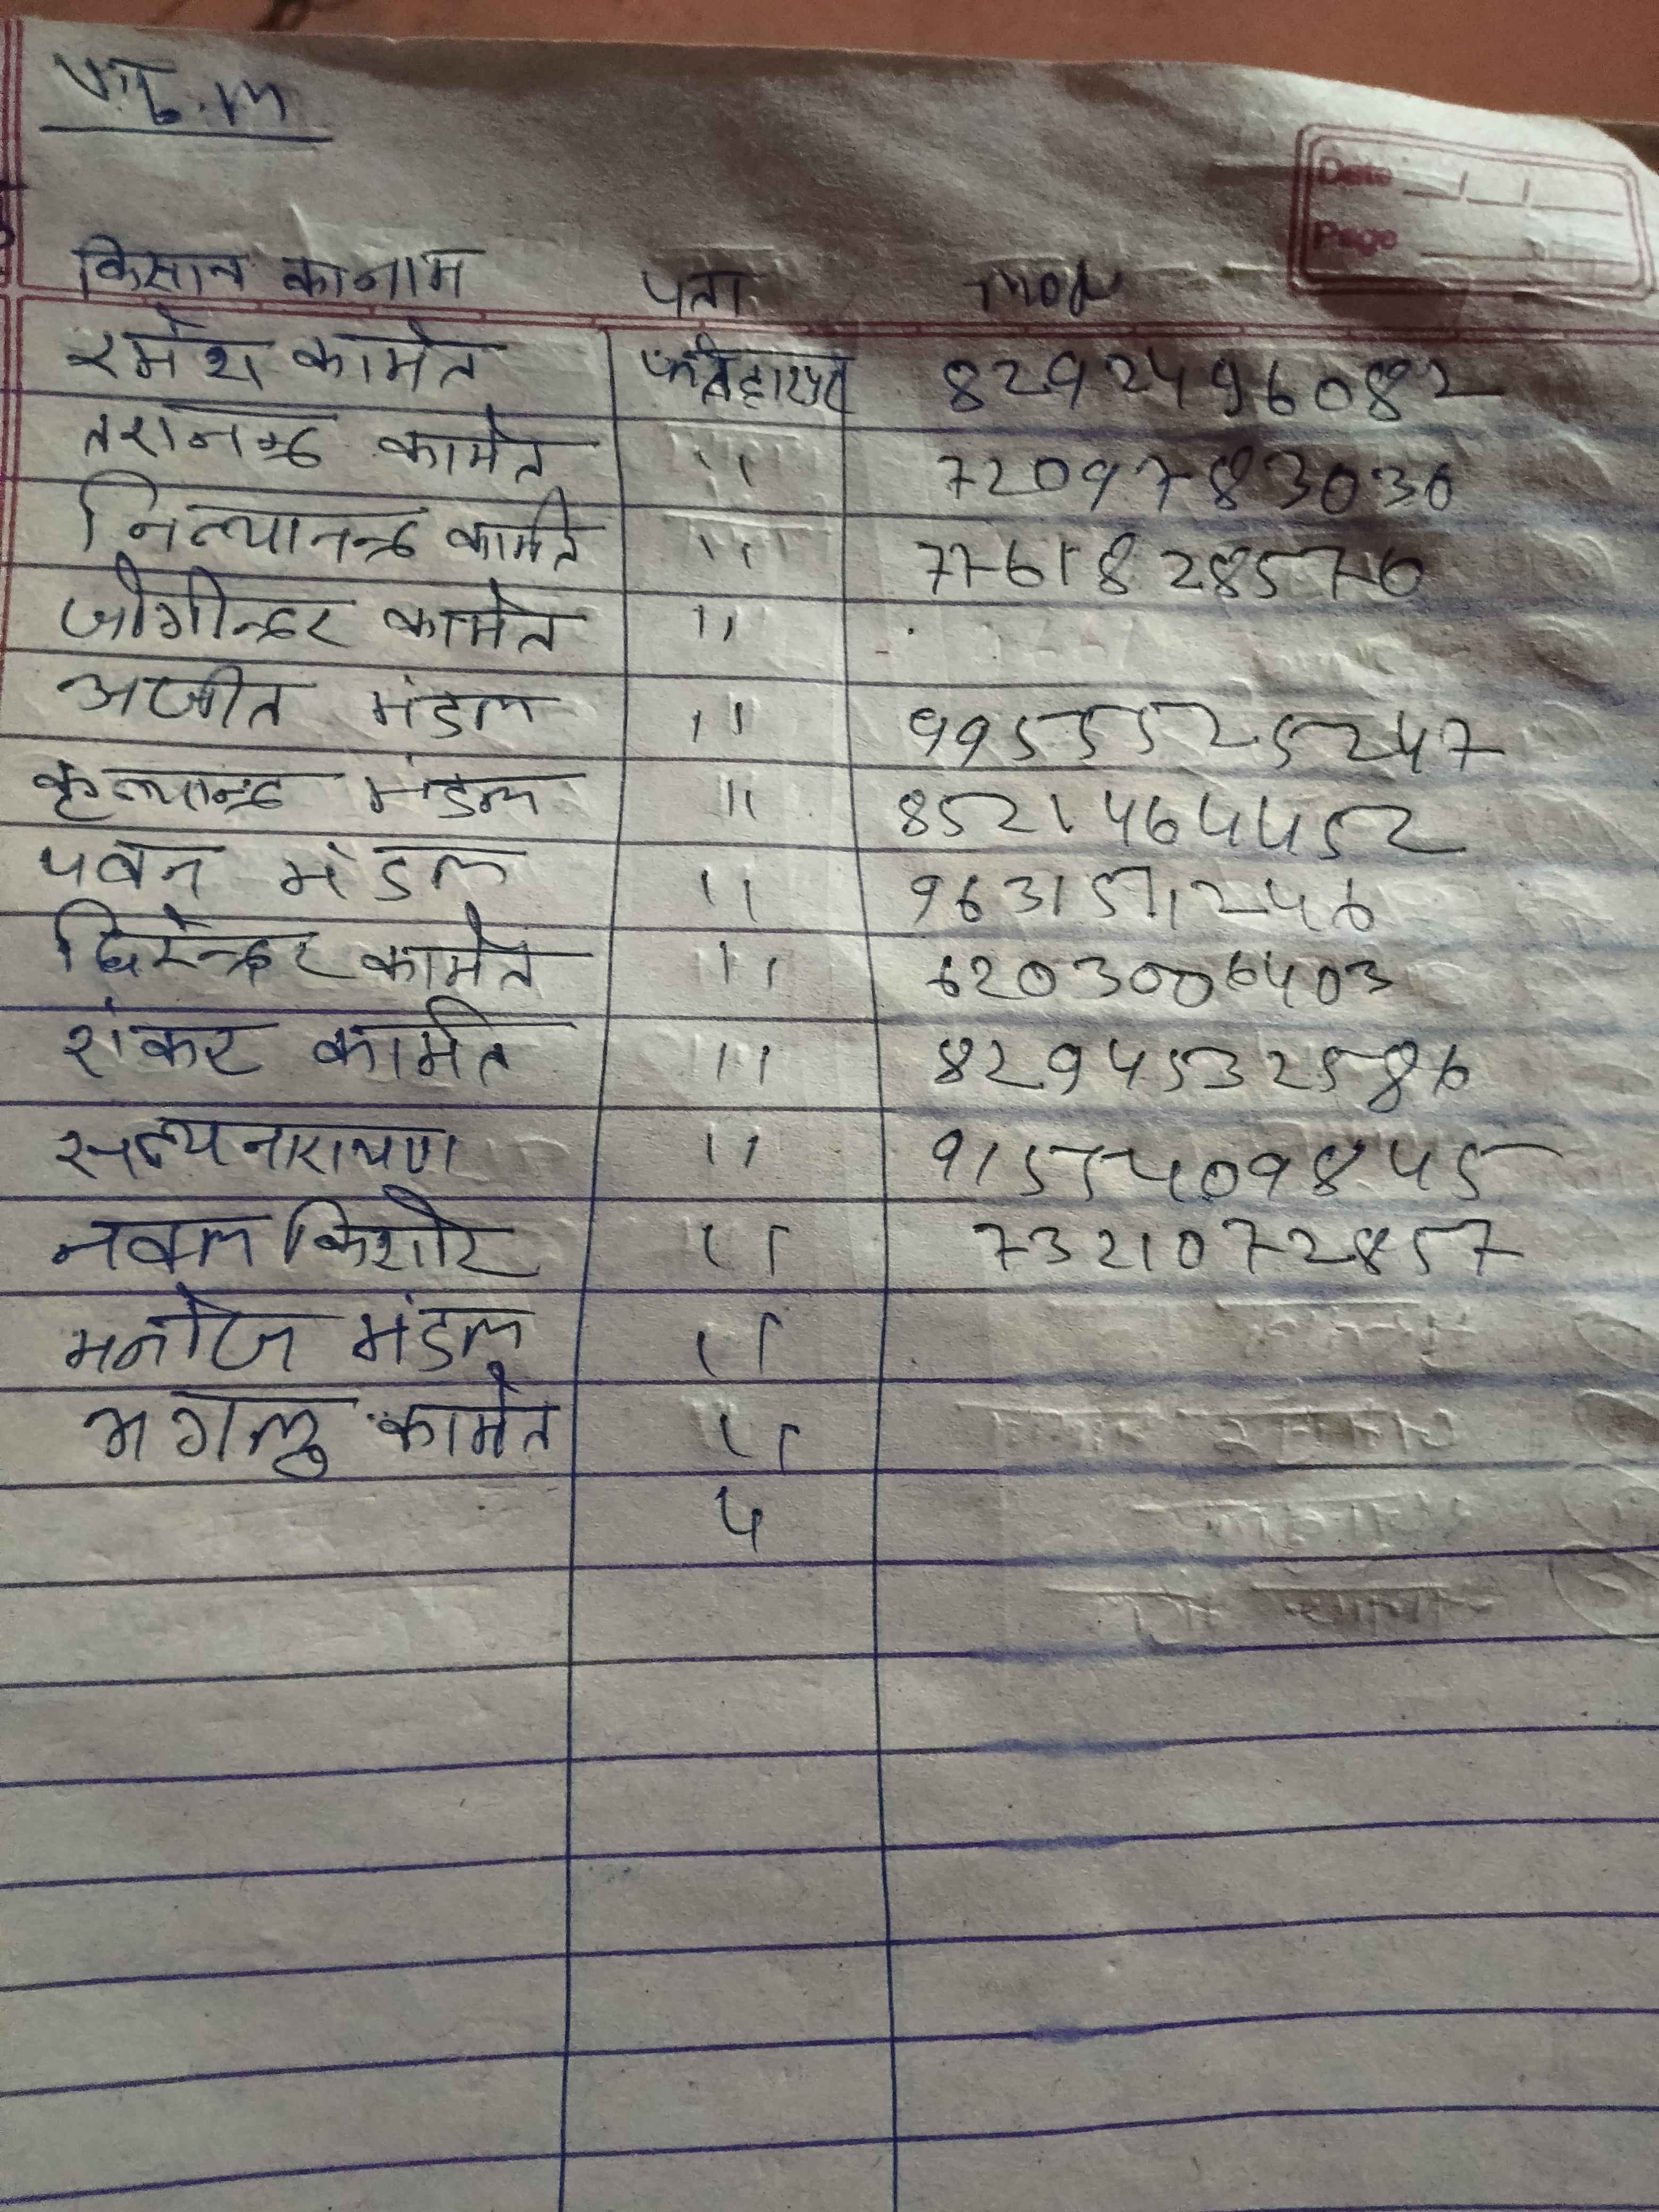 Date
Page
किसान का नाम पता mob
रमेश कामेत 8292496082
तरानन्द कामेत " 7209783030
नित्यानन्द कामेत " 7761828576
जोगीन्दर कामेत "
अजीत मंडल " 9955525247
कृत्यानन्द मंडल " 8521464452
पवन मंडल " 9631571246
द्विरेन्द्र कामेत " 6203006403
शंकर कामेत " 8294532586
सत्यनारायण " 9155409845
नवल किशोर " 7321072857
मनोज मंडल "
कामेत "